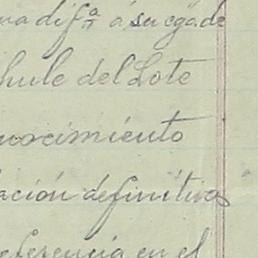 dif.ª á su cg de
hule del Lote
nocimiento
ación definitivas
eferencia en el